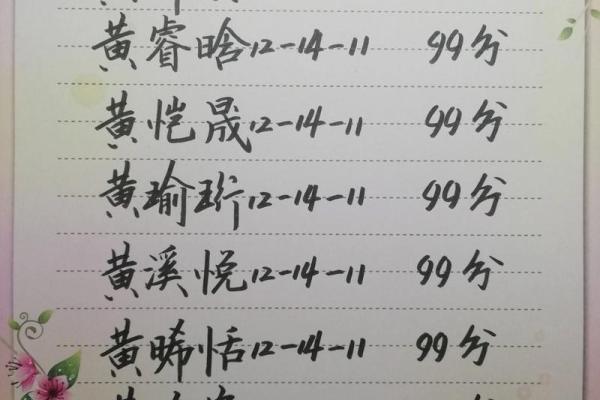 黄睿晗12-14-11 99分
黄恺晟12-14-11 99分
黄瑜珩12-14-11 99分
黄溪悦12-14-11 99分
黄晞恬12-14-11 99分